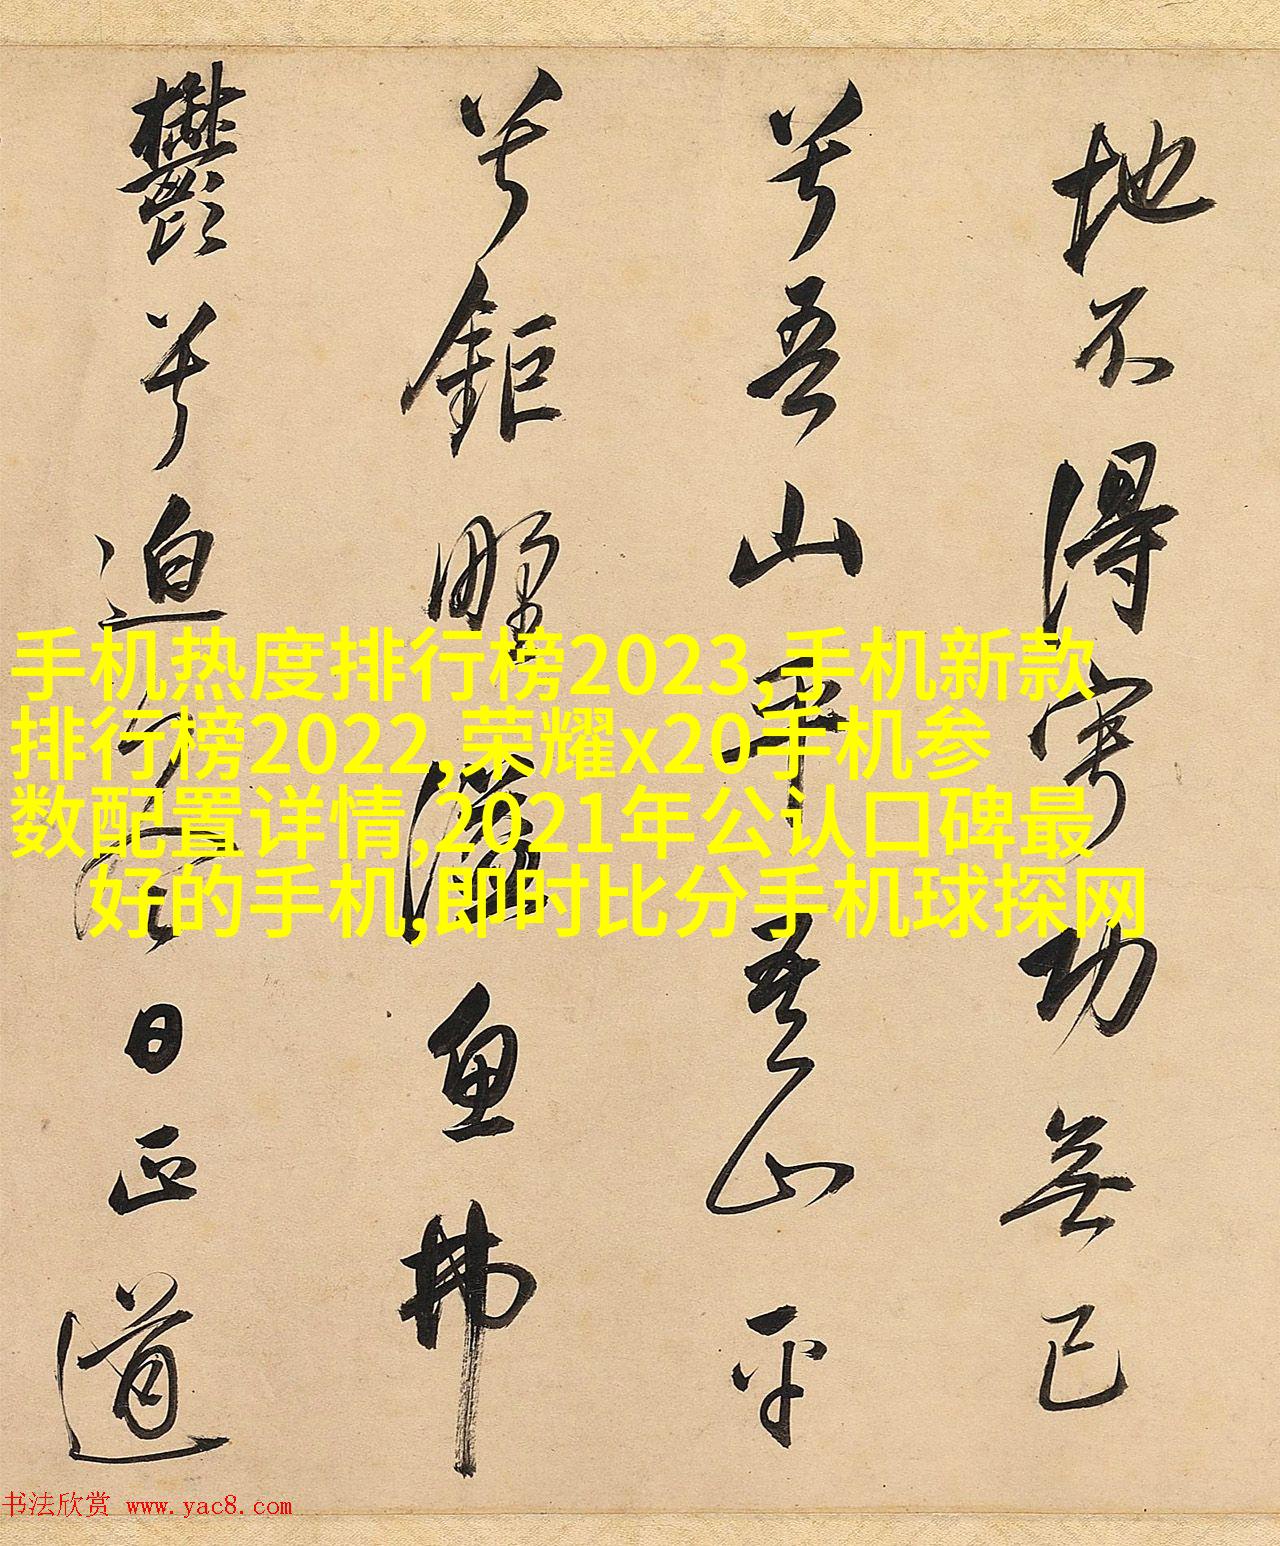 地不得寧功無已
兮吾山平吾山平
兮鉅野溢魚拂
鬱兮迫冬日正道
手机热度排行榜2023,手机新款
排行榜2022,荣耀x20手机参
数配置详情,2021年公认口碑最
好的手机,即时比分手机球探网
书法欣赏 www.yac8.com